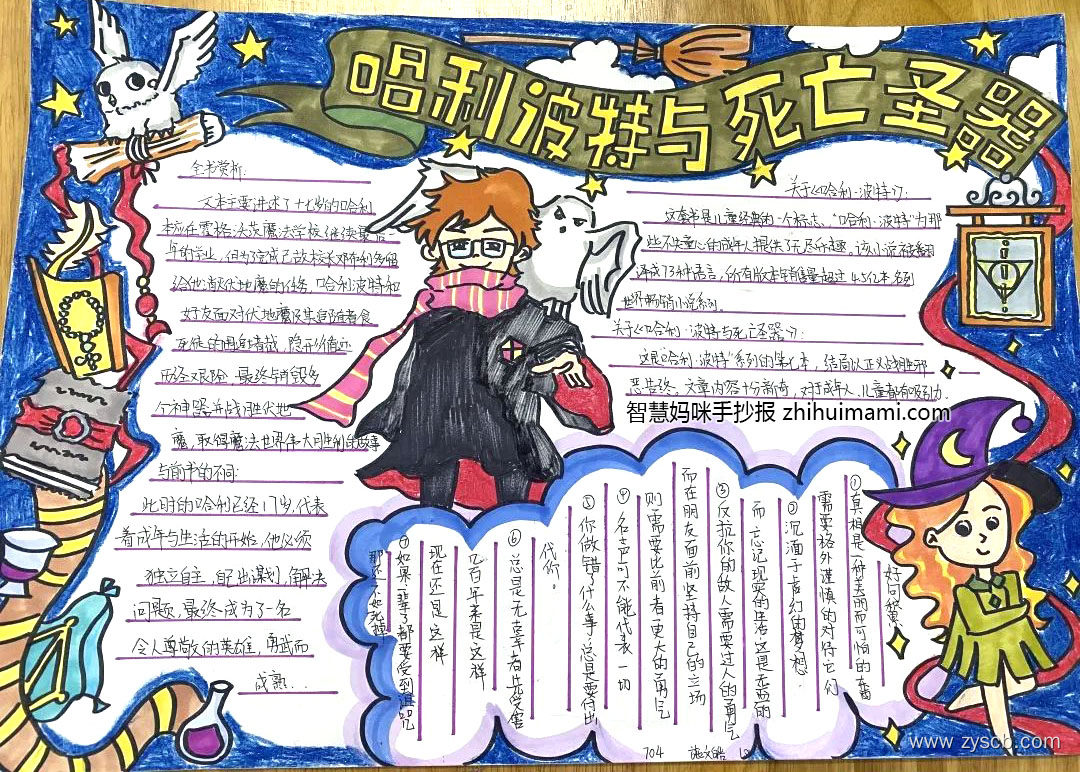 哈利波特与死亡圣器
全书赏析:
文本主要讲述了十七岁的哈利
本应在霍格沃茨魔法学校继续最后一
年的学业,但却完成已故校长邓布利多留
给他消灭伏地魔的任务,哈利波特和
好友面对伏地魔及其追随者食
死徒的围追堵截,隐形
历经艰险,最终毁
个神器并战胜伏地
魔,取得魔法世界伟大胜利的故事
与前书的不同:
此时的哈利已经17岁,代表
着成年与生活的开始,他必须
独立自主,解决
问题,最终成为了一名
令人尊敬的英雄,勇武而
成熟...
关于《哈利·波特》:
这套书是儿童经典的一个标志,“哈利·波特”为那
些不失童心的成年人提供了无尽乐趣。该小说被翻
译成73种语言,所有版本销售量超过4.5亿本,名列
世界畅销小说系列。
关于《哈利·波特与死亡圣器》:
这是“哈利·波特”系列的第七本,结局以正义战胜邪
恶告终。文章内容十分新奇,对于成年人、儿童都有吸引力.
智慧妈咪手抄报 zhihuimami.com
好句赞赏
①真相是一种美丽而可怕的东西
需要格外谨慎的对待它们
②沉湎于虚幻的梦想
而忘记现实的生活这是无益的
③反抗你的敌人需要过人的勇气
而在朋友面前坚持自己的立场
则需要比前者更大的勇气
④名声可不能代表一切
⑤你做错了什么事总是要付出
代价。
⑥总是无辜者先受害
几百年来是这样
现在还是这样
⑦如果一辈子都要受到诅咒
那还不如死掉
704
www.zyscb.com